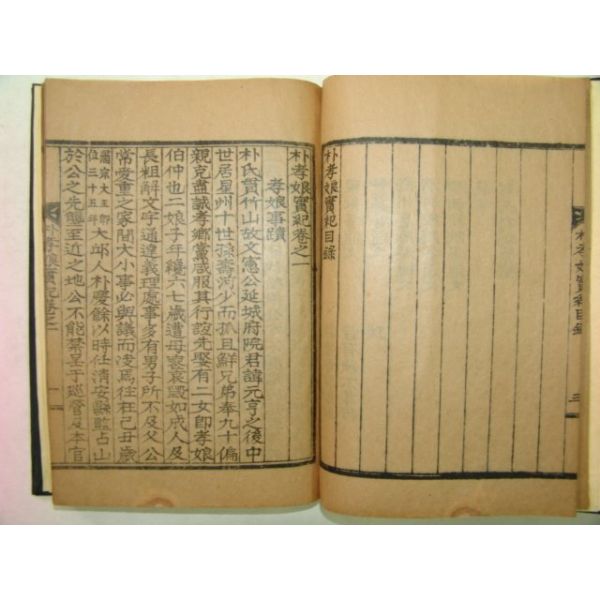 朴孝娘實紀目錄
朴孝娘實紀目錄
三
朴孝娘實紀卷之一
孝娘事蹟
朴氏貫竹山故文憲公延城府院君諱元亨之後中
世居星州十世孫壽河少而孤且鮮兄弟奉九十偏
親克盡誠孝鄉黨咸服其行誼先娶有二女卽孝娘
伯仲也二娘子年纔六七歲遭母喪哀毁如成人及
長粗解文字通達義理處事多有男子所不及父公
常愛重之家間大小事必與議而後爲往在己丑歲
肅宗大王卽位三十五年大邱人朴慶餘以時任淸安縣監占山
於公之先壟至近之地公不能禁呈于巡營及本官
朴孝娘實紀卷之一
一